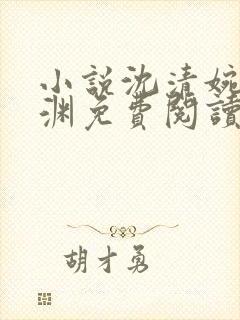 小説沈清婉
渊免費閱讀
胡才勇